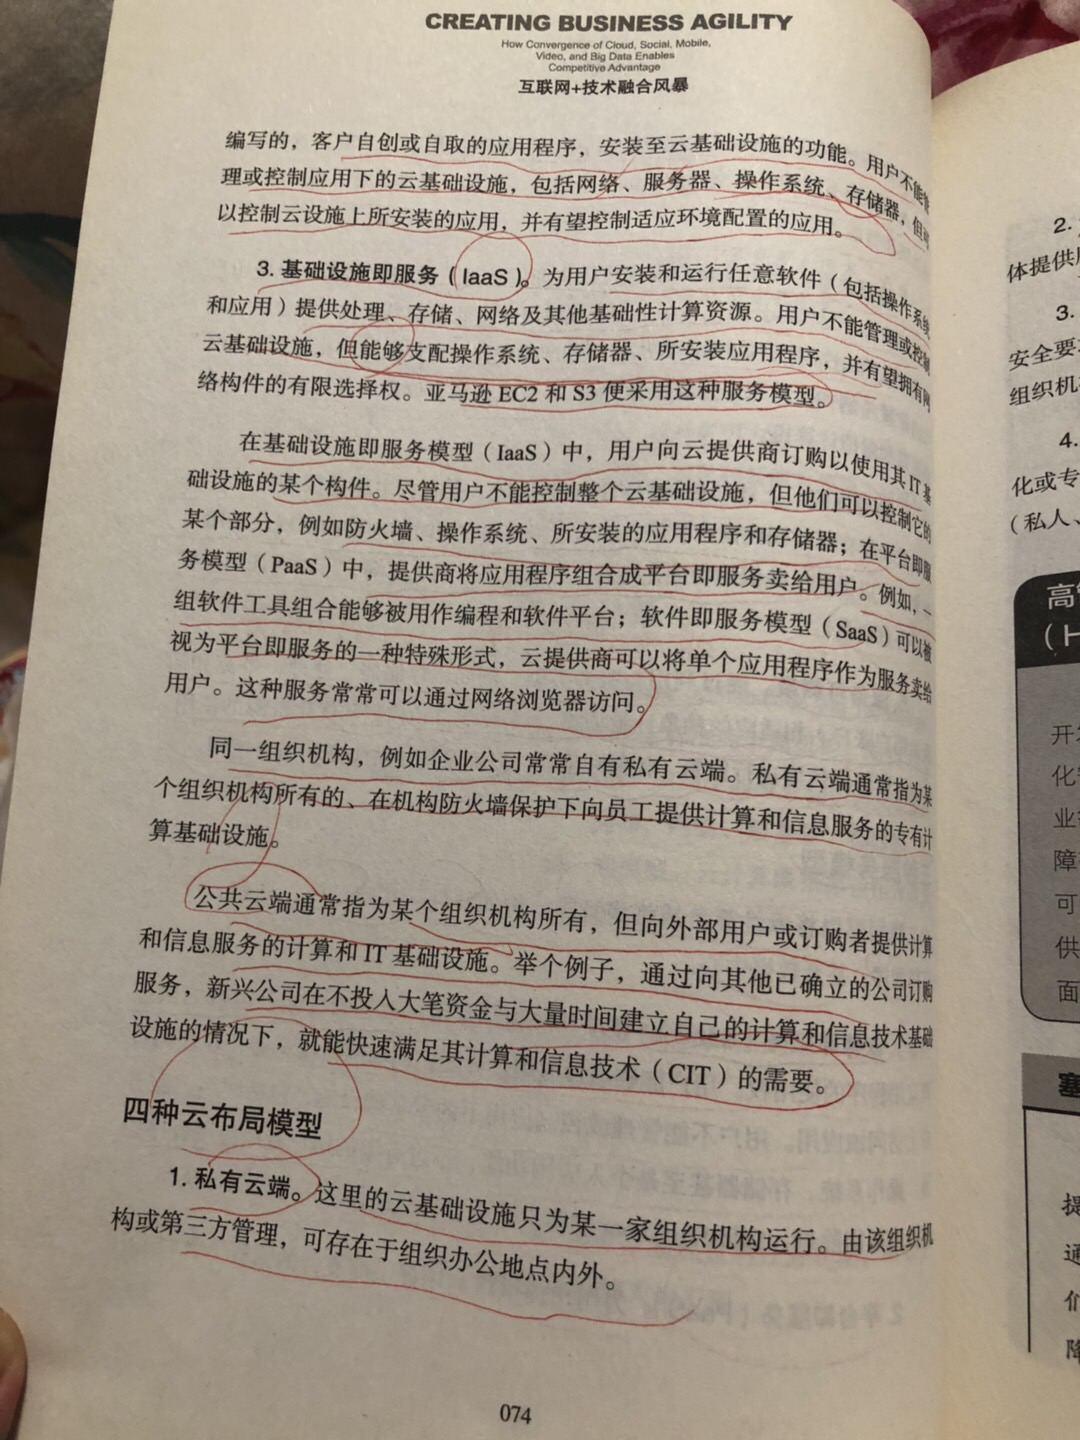 CREATING BUSINESS AGILITY
How Convergence of Cloud, Social, Mobile,
Video, and Big Data Enables
Competitive Advantage
互联网+技术融合风暴
编写的，客户自创或自取的应用程序，安装至云基础设施的功能。用户不能管
理或控制应用下的云基础设施，包括网络、服务器、操作系统、存储器，但可
以控制云设施上所安装的应用，并有望控制适应环境配置的应用。
3. 基础设施即服务（IaaS）。为用户安装和运行任意软件（包括操作系统
和应用）提供处理、存储、网络及其他基础性计算资源。用户不能管理或控制
云基础设施，但能够支配操作系统、存储器、所安装应用程序，并有望拥有网
络构件的有限选择权。亚马逊 EC2 和 S3 便采用这种服务模型。
在基础设施即服务模型（IaaS）中，用户向云提供商订购以使用其 IT 基
础设施的某个构件。尽管用户不能控制整个云基础设施，但他们可以控制它的
某个部分，例如防火墙、操作系统、所安装的应用程序和存储器；在平台即服
务模型（PaaS）中，提供商将应用程序组合成平台即服务卖给用户。例如，一
组软件工具组合能够被用作编程和软件平台；软件即服务模型（SaaS）可以被
视为平台即服务的一种特殊形式，云提供商可以将单个应用程序作为服务卖给
用户。这种服务常常可以通过网络浏览器访问。
同一组织机构，例如企业公司常常自有私有云端。私有云端通常指为某
个组织机构所有的、在机构防火墙保护下向员工提供计算和信息服务的专有计
算基础设施。
公共云端通常指为某个组织机构所有，但向外部用户或订购者提供计算
和信息服务的计算和 IT 基础设施。举个例子，通过向其他已确立的公司订购
服务，新兴公司在不投入大笔资金与大量时间建立自己的计算和信息技术基础
设施的情况下，就能快速满足其计算和信息技术（CIT）的需要。
四种云布局模型
1. 私有云端。这里的云基础设施只为某一家组织机构运行。由该组织机
构或第三方管理，可存在于组织办公地点内外。
074
2.
体提供
3.
安全要
组织机
4.
化或专
（私人、
高
（H
开
化
业
障
可
供
面
塞
提
通
们
降